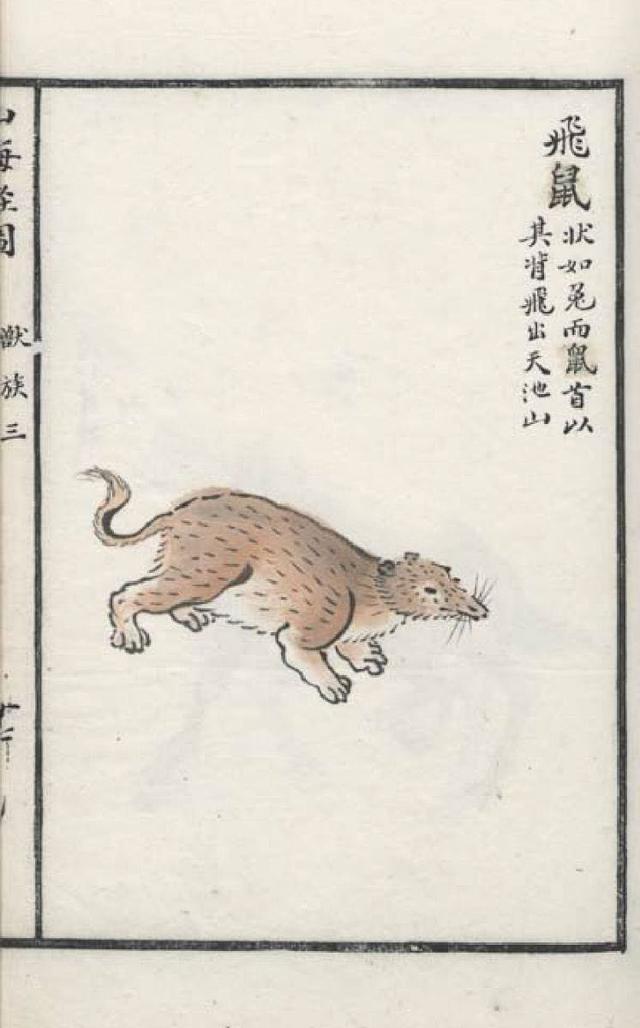 飛鼠
狀如兎而鼠首以
其背飛出天池山
山海經圖
獸族三